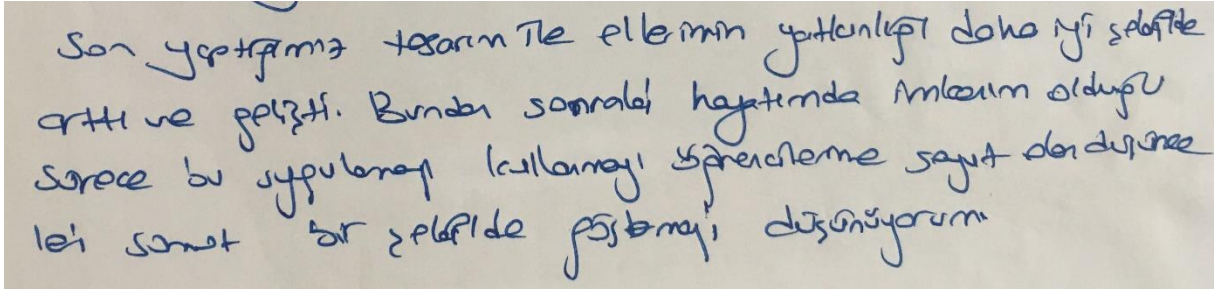 Son yaptığımız tasarım ile ellerimin yatkınlığı daha iyi şekilde
arttı ve gelişti. Bundan sonraki hayatımda imkanım olduğu
sürece bu uygulamayı kullanmayı öğrencilerime soyut olan düşünce
leri somut bir şekilde göstermeyi düşünüyorum